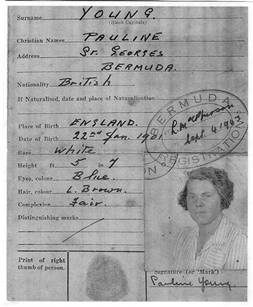 Surname YOUNG.
(Block Capitals)
Christian Names PAULINE
Address St. Georges
BERMUDA.
Nationality British
If Naturalised, date and place of Naturalisation
Place of Birth ENGLAND.
Date of Birth 22nd Jan. 1901.
Race White
Height ft. 5 in 7
Eyes, colour Blue.
Hair, colour L. Brown.
Complexion Fair.
Distinguishing marks
BERMUDA
Sept 4 1943
REGISTRATION
Print of right
thumb of person.
Signature (or "Mark")
Pauline Young